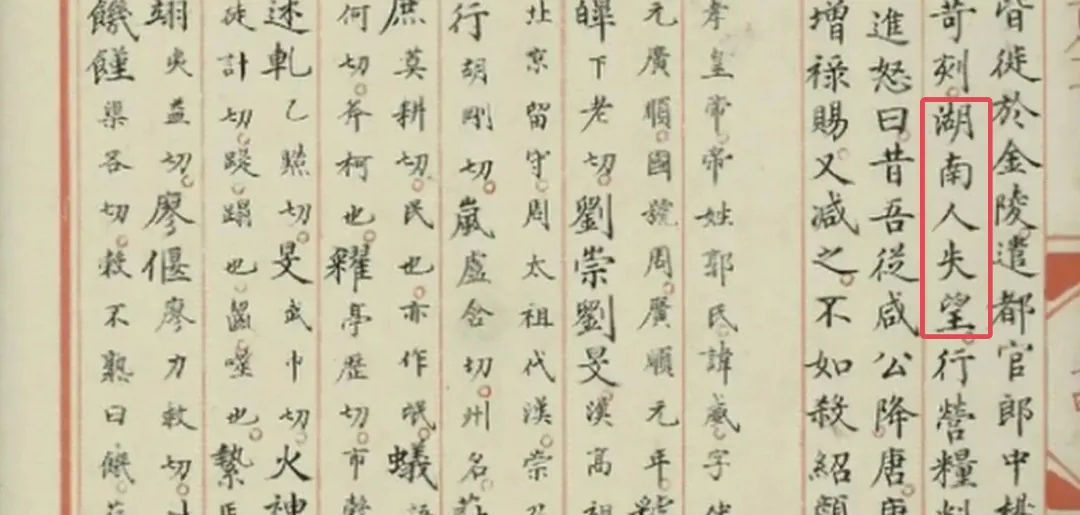 皆徙於金陵遣都官郎中楊
苛刻。湖南人失望。行營糧料
進怒曰。昔吾從咸公降唐。唐
增祿賜。又減之。不如殺紹顏
孝皇帝。帝姓郭氏。諱威。字
元廣順。國號周。廣順元年。
皡下老切。劉崇劉旻。漢高祖
北京留守。周太祖代漢。崇
行胡剛切。嵐盧含切。州名。
莫耕切。民也。亦作氓。蟻語
何切。斧柯也。糴亭歷切。市
軋乙黠切。旻武巾切。火神
徒計切。踶蹋也。齧噬也。縶
翊夷益切。廖偃廖力救切。
饑饉渠吝切。穀不熟曰饑。